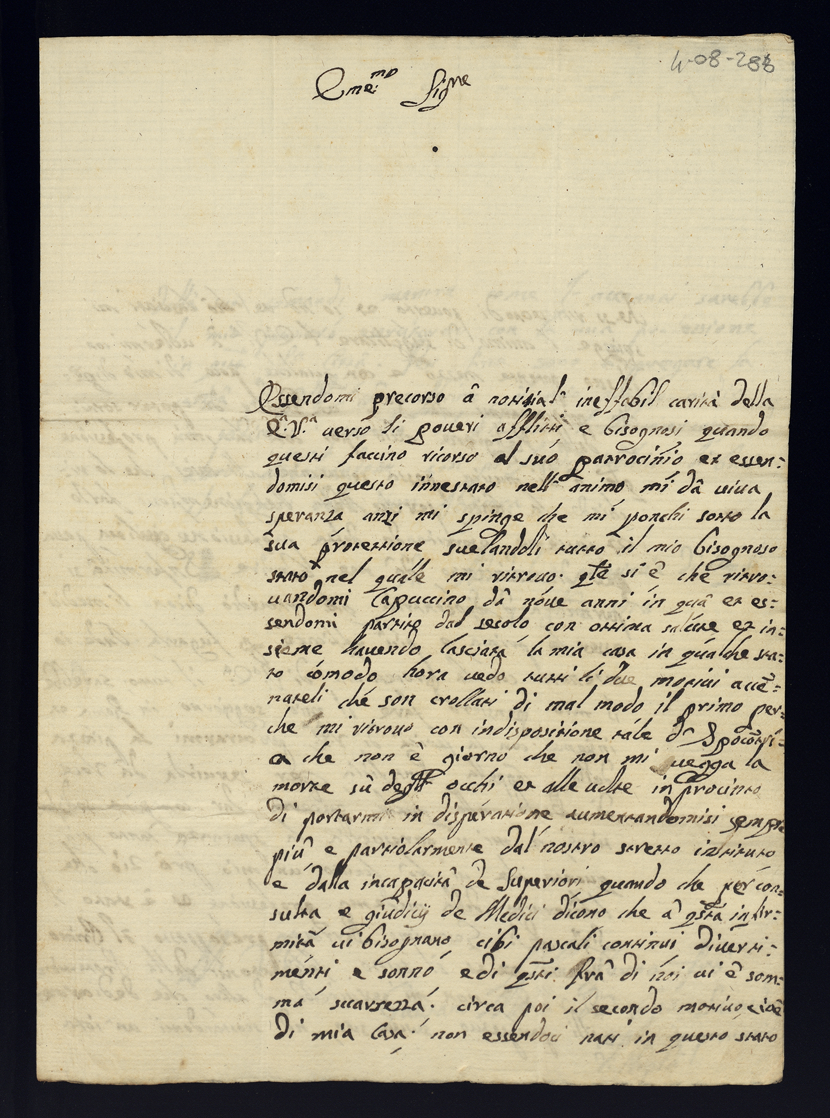 4-08-288
Em:mo Sig:re
Essendomi precorso à notitia l' ineffabil carità della
E.a V.a verso li poueri afflitti e bisognosi quando
questi faccino ricorso al suo patrocinio et essen:
domisi questo innestato nell' animo mi dà uiua
speranza anzi mi spinge che mi ponghi sotto la
sua protettione suelandoli tutto il mio bisognoso
stato nel quale mi ritrouo. qste si è che ritro:
uandomi Capuccino dà noue anni in quà et es:
sendomi partito dal secolo con ottima salute et in:
sieme hauendo lasciata la mia casa in qualche sta:
to comodo hora uedo tutti li due motiui accē:
nateli che son crollati di mal modo il primo per:
che mi ritrouo con indispositione tale d'Hpocōtri:
a che non è giorno che non mi uegga la
morte sù degli occhi et alle uolte in procinto
di portarmi in disperatione aumentandomisi sempre
più e particolarmente dal nostro stretto instituto
e dalla incapacità de Superiori quando che per con:
sulta e giudicij de Medici dicono che à qsta infir:
mità ui bisognano cibi pascali continui diuerti:
menti e sonno e di qsti frà di noi ui è som:
ma scarsezza. circa poi il secondo motiuo cioè
di mia Casa. non essendoci nati in questo stato